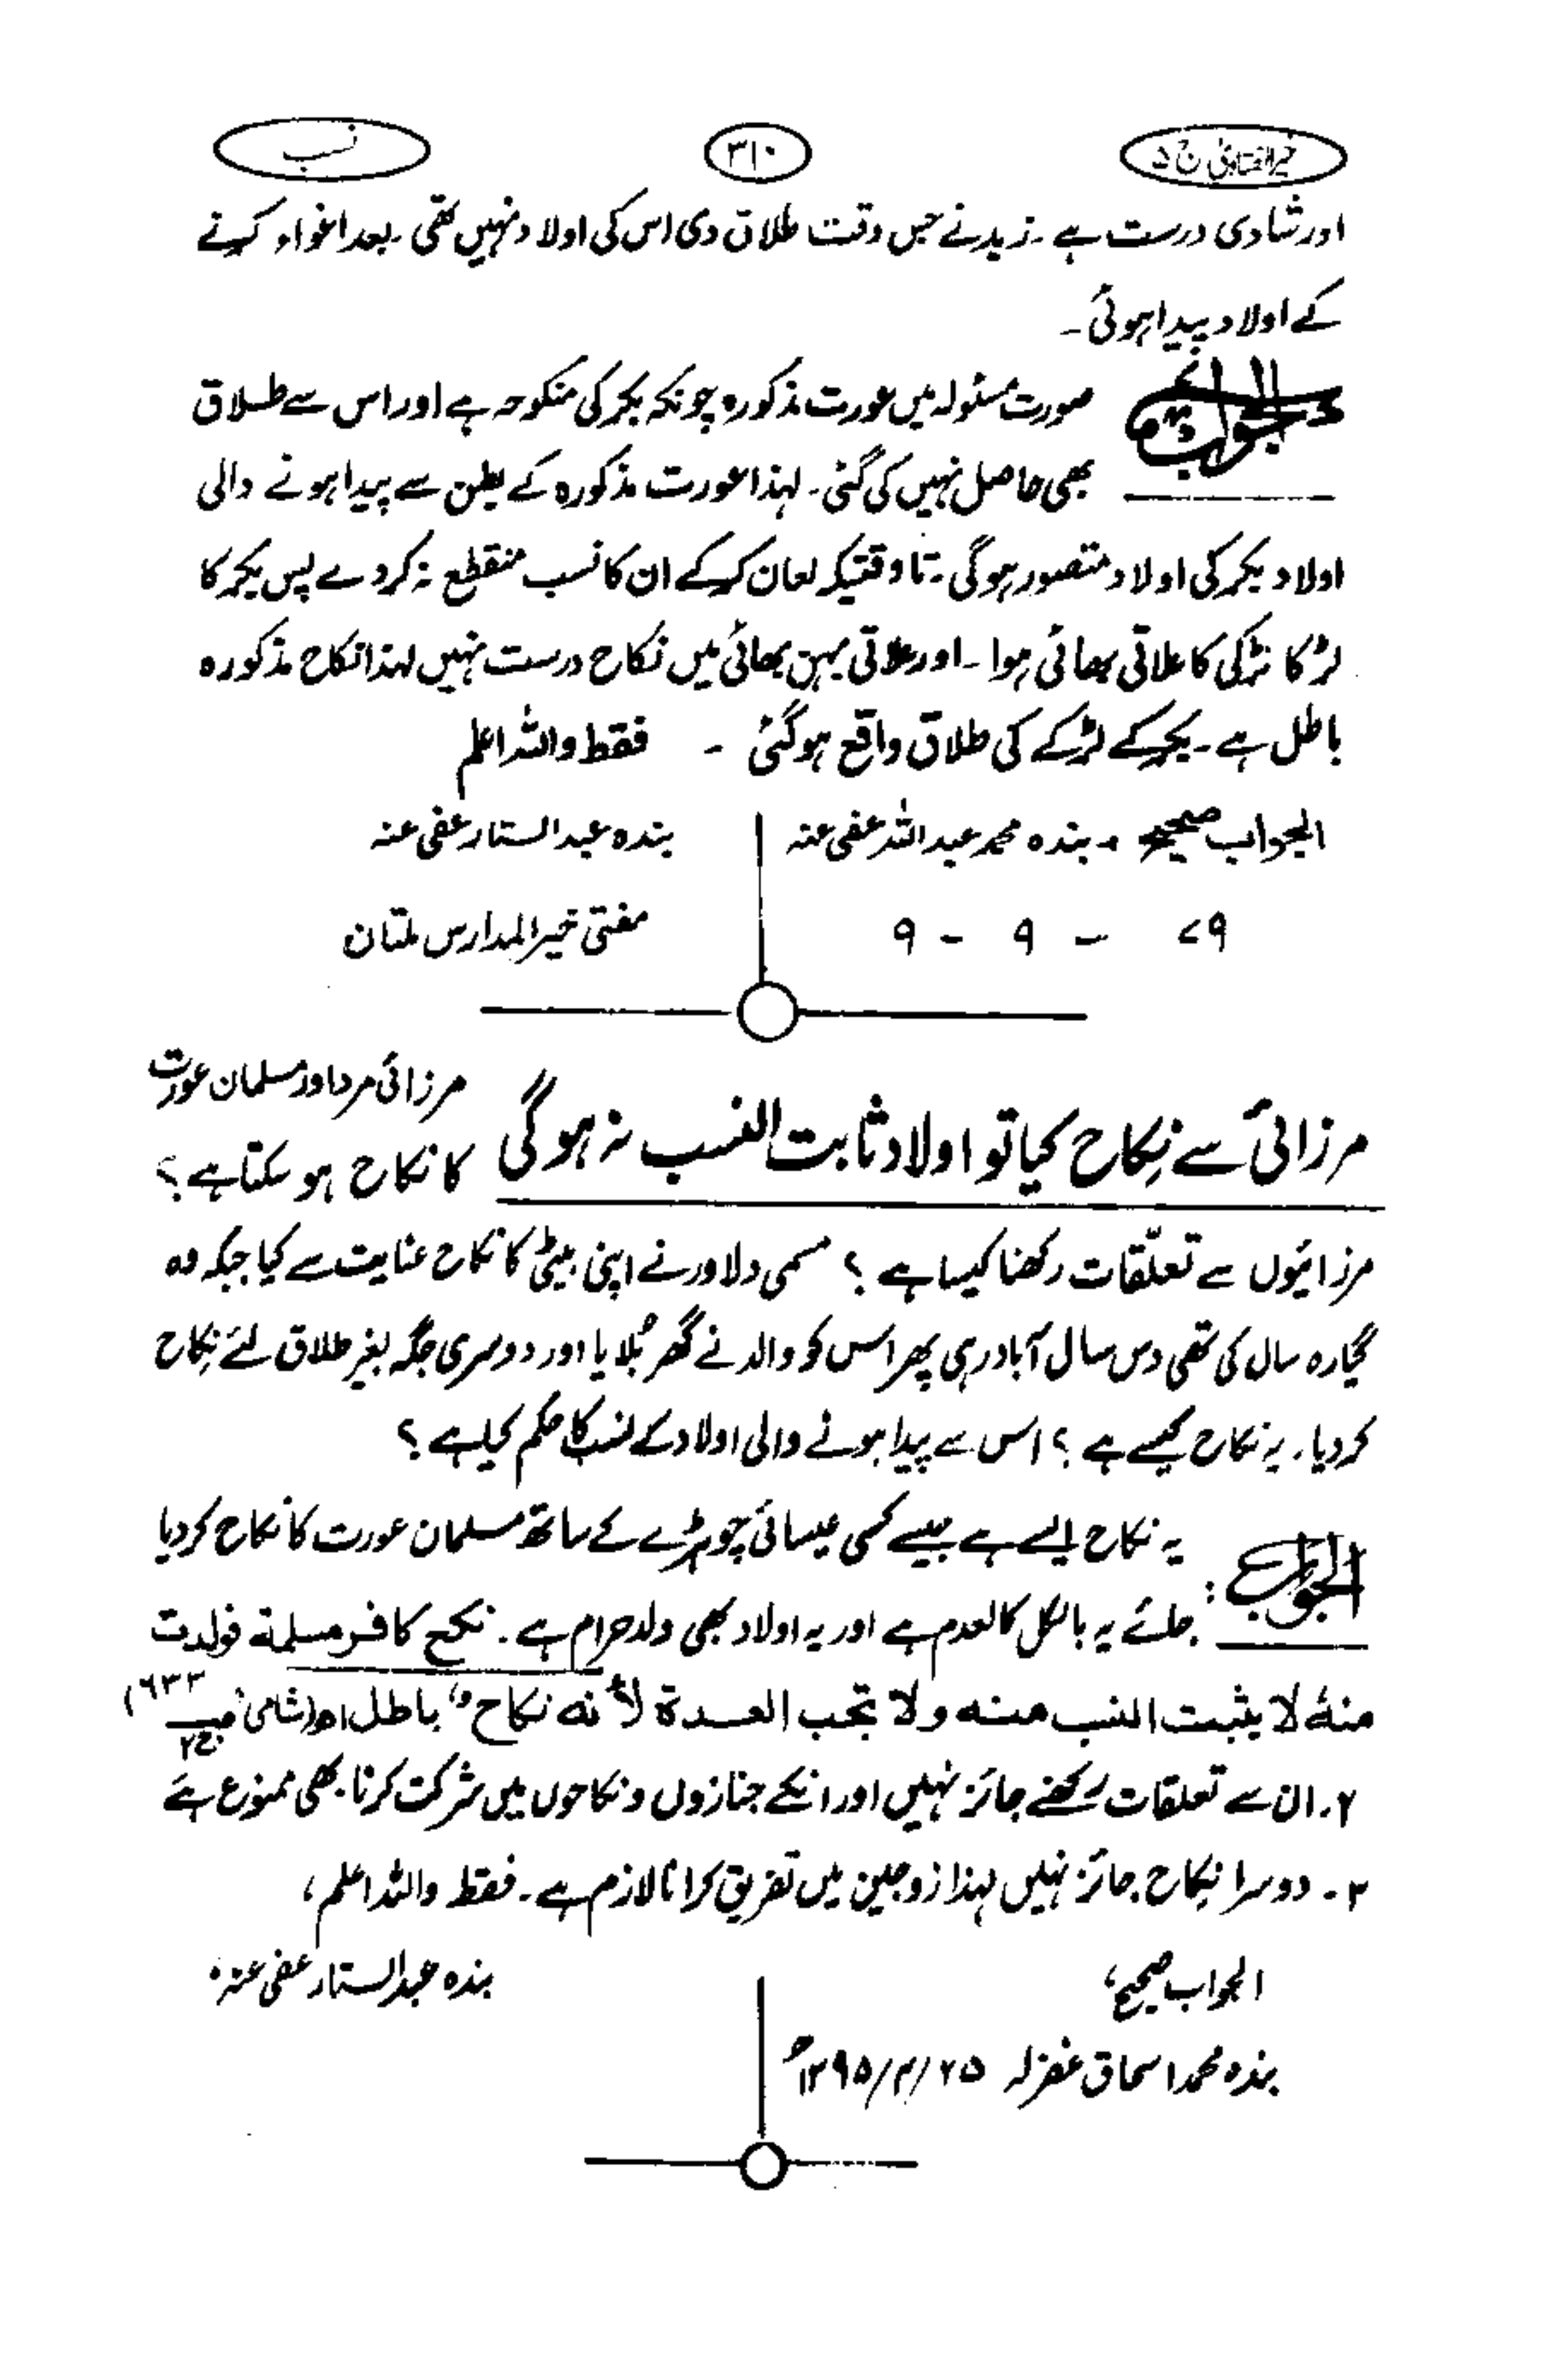 خیر الفتاویٰ ج ۵
۳۱۰
نسب
اور شادی درست ہے ۔ زید نے جس وقت طلاق دی اس کی اولاد نہیں تھی ۔ بعد اغواء کرنے
کے اولاد پیدا ہوئی ۔
الجواب صورت مسئولہ میں عورت مذکورہ چونکہ بکر کی منکوحہ ہے اور اس سے طلاق
بھی حاصل نہیں کی گئی ۔ لہذا عورت مذکورہ کے بطن سے پیدا ہونے والی
اولاد بکر کی اولاد متصور ہوگی ۔ تا وقتیکہ لعان کر کے ان کا نسب منقطع نہ کر دے پس بکر کا
لڑکا لڑکی کا علاتی بھائی ہوا ۔ اور علاتی بہن بھائی میں نکاح درست نہیں لہذا نکاح مذکورہ
باطل ہے ۔ بکر کے لڑکے کی طلاق واقع ہو گئی ۔ فقط واللہ اعلم
الجواب صحیح ، بندہ محمد عبد اللہ عفی عنہ
بندہ عبد الستار عفی عنہ
۹ - ۹ - ۷۹
مفتی خیر المدارس ملتان
مرزائی سے نکاح کیا تو اولاد ثابت النسب نہ ہوگی مرزائی مرد اور مسلمان عورت
کا نکاح ہو سکتا ہے ؟
مرزائیوں سے تعلقات رکھنا کیسا ہے ؟ مسمی دلاور نے اپنی بیٹی کا نکاح عنایت سے کیا جبکہ وہ
گیارہ سال کی تھی دس سال آباد رہی پھر اس کو والد نے گھر بُلایا اور دوسری جگہ بغیر طلاق لئے نکاح
کر دیا ، یہ نکاح کیسے ہے ؟ اس سے پیدا ہونے والی اولاد کے نسب کا حکم کیا ہے ؟
الجواب : یہ نکاح ایسے ہے جیسے کسی عیسائی چوہڑے کے ساتھ مسلمان عورت کا نکاح کر دیا
جائے یہ بالکل کالعدم ہے اور یہ اولاد بھی ولد حرام ہے . نکح کافر مسلمة فولدت
منهٗ لا یثبت النسب منه ولا تجب العدة لأنه نکاح باطل اھ (شامی ص ۶۳۳ ج ۲)
۲ . ان سے تعلقات رکھنے جائز نہیں اور انکے جنازوں و نکاحوں میں شرکت کرنا بھی ممنوع ہے
۳ . دوسرا نکاح جائز نہیں لہذا زوجین میں تفریق کرانا لازم ہے . فقط واللہ اعلم ،
الجواب صحیح ،
بندہ عبد الستار عفی عنہ
بندہ محمد اسحاق غفرلہ ۲۵ / ۲ / ۱۳۹۵ھ